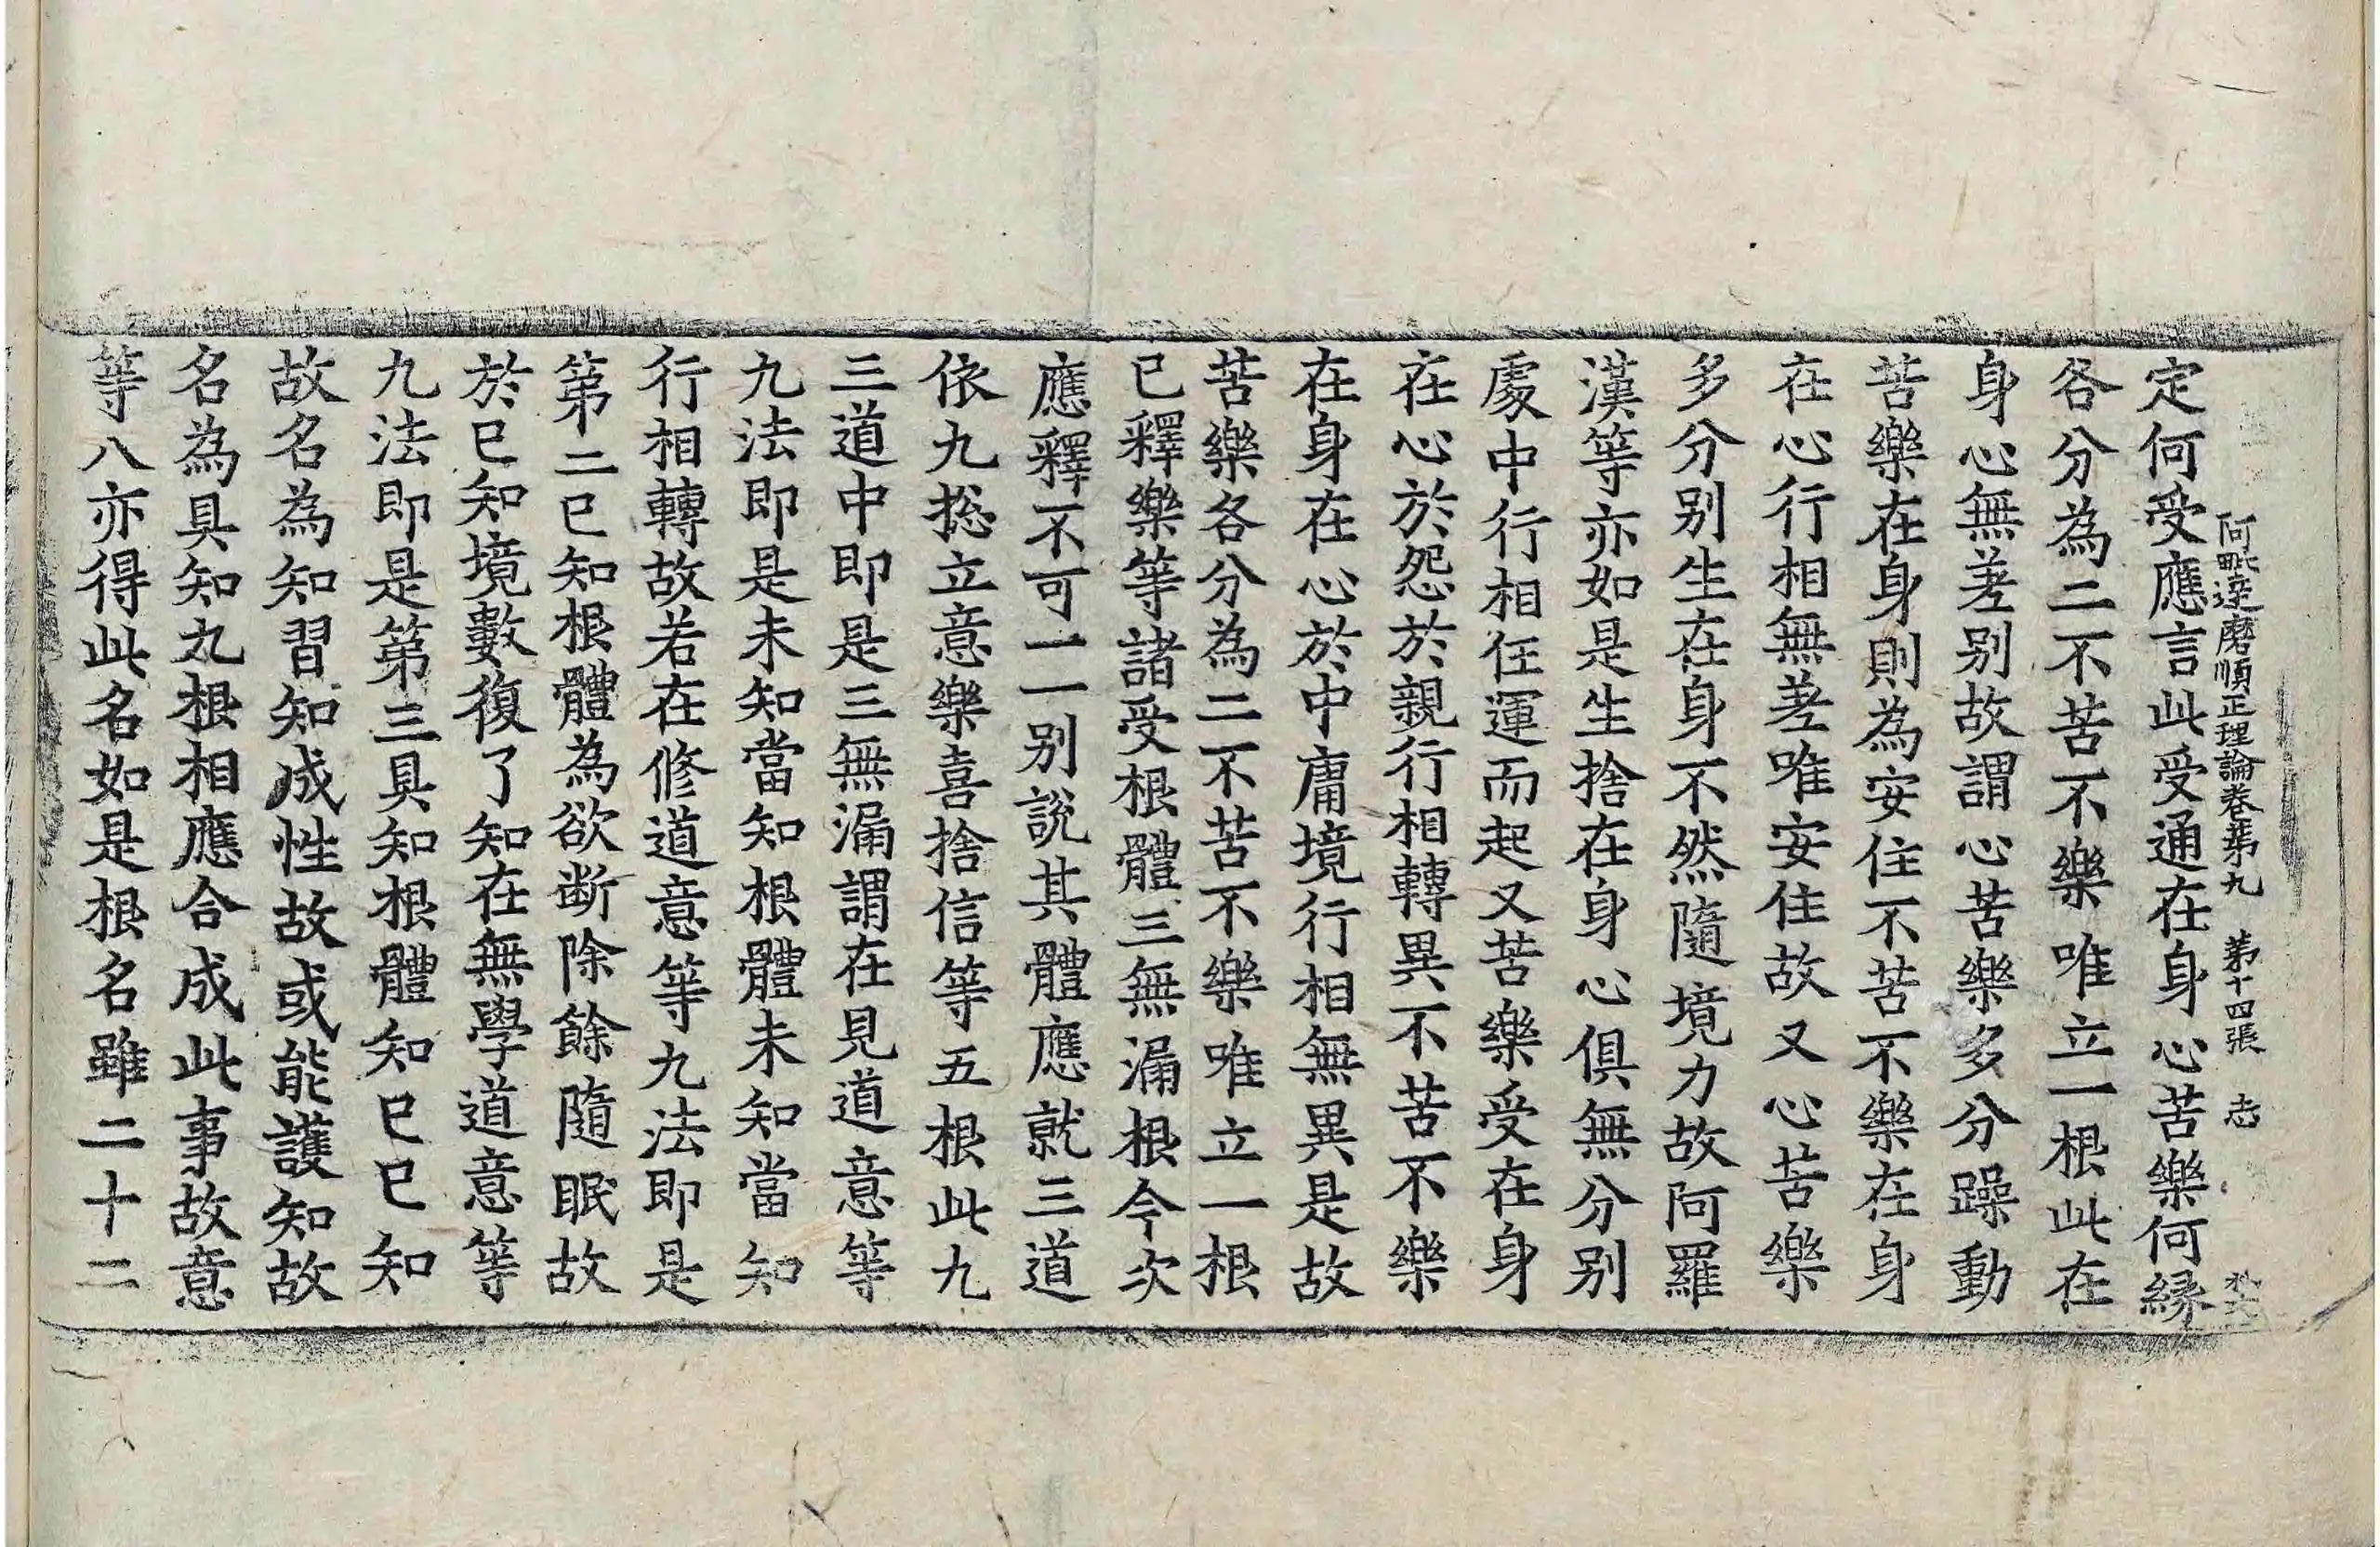 阿毗達磨順正理論卷第九 第十四張 志
定何受應言此受通在身心苦樂何縁
各分為二不苦不樂唯立一根此在
身心無差别故謂心苦樂多分躁動
苦樂在身則為安住不苦不樂在身
在心行相無差唯安住故又心苦樂
多分别生在身不然隨境力故阿羅
漢等亦如是生捨在身心俱無分别
處中行相任運而起又苦樂受在身
在心於怨於親行相轉異不苦不樂
在身在心於中庸境行相無異是故
苦樂各分為二不苦不樂唯立一根
已釋樂等諸受根體三無漏根今次
應釋不可一一别說其體應就三道
依九捴立意樂喜捨信等五根此九
三道中即是三無漏謂在見道意等
九法即是未知當知根體未知當知
行相轉故若在修道意等九法即是
第二已知根體為欲断除餘隨眠故
於已知境數復了知在無學道意等
九法即是第三具知根體知已已知
故名為知習知成性故或能護知故
名為具知九根相應合成此事故意
等八亦得此名如是根名雖二十二